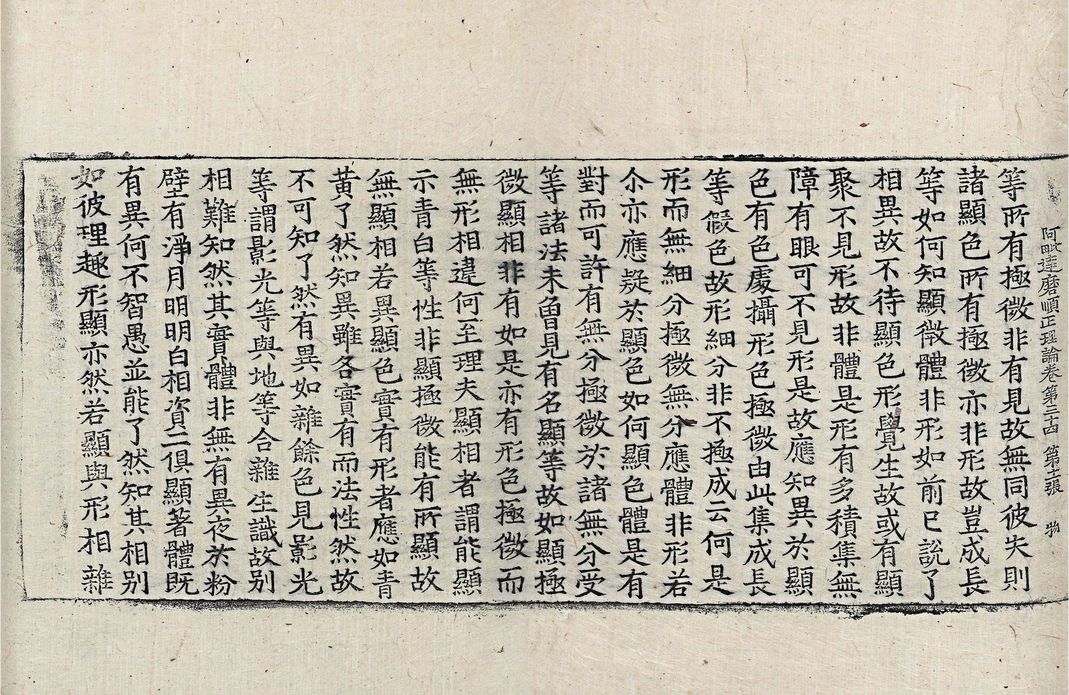 阿毗達磨順正理論卷第三十四 第七張 物
等所有極微非有見故無同彼失則
諸顯色所有極微亦非形故豈成長
等如何知顯微體非形如前已說了
相異故不待顯色形覺生故或有顯
聚不見形故非體是形有多積集無
障有眼可不見形是故應知異於顯
色有色處攝形色極微由此集成長
等假色故形細分非不極成云何是
形而無細分極微無分應體非形若
尒亦應疑於顯色如何顯色體是有
對而可許有無分極微於諸無分受
等諸法未曾見有名顯等故如顯極
微顯相非有如是亦有形色極微而
無形相違何至理夫顯相者謂能顯
示青白等性非顯極微能有所顯故
無顯相若異顯色實有形者應如青
黃了然知異雖各實有而法性然故
不可知了然有異如雜餘色見影光
等謂影光等與地等合雜生識故別
相難知然其實體非無有異夜於粉
壁有淨月明明白相資二俱顯著體既
有異何不智愚並能了然知其相別
如彼理趣形顯亦然若顯與形相雜